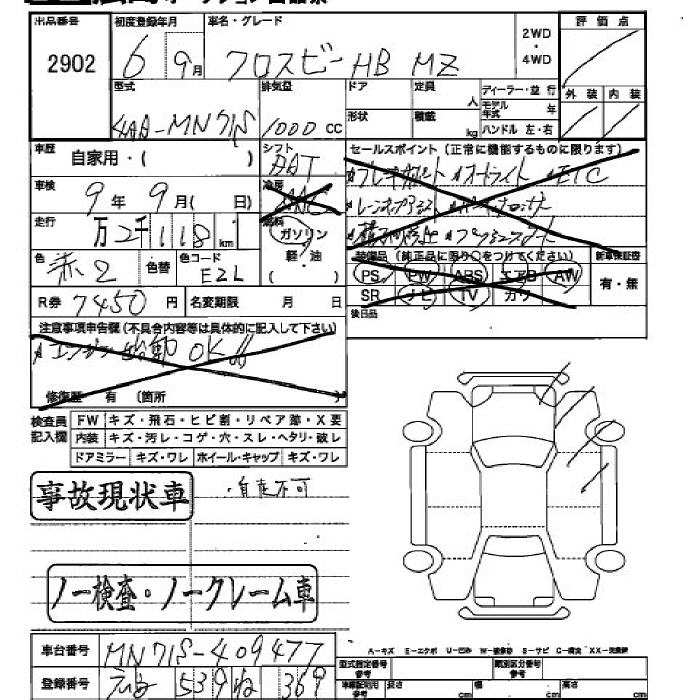 出品番号 初度登録年月 車名・グレード 2WD・4WD 評価点
2902 6年 9月 クロスビー HB MZ
型式 排気量 ドア 定員 人 ディーラー・並行 外装 内装
4AA-MN71S 1000cc 形状 積載 kg モデル年式 年 ハンドル 左・右
車歴 自家用・( ) シフト DAT セールスポイント(正常に機能するものに限ります)
ブレーキ オートライト ETC
車検 9年 9月( 日) 冷房 AAC
走行 万2千118km 燃料 ガソリン・軽・油( )
色 赤2 色替 色コード EZL 装備品(純正品に限り○をつけてください) 新車保証書
PS PW ABS エアB AW 有・無
SR ナビ TV カワ
R券 7450円 名変期限 月 日 後日品
注意事項申告欄(不具合内容等は具体的に記入して下さい)
エンジン始動OK
修復歴 有(箇所 )
検査員記入欄 FW キズ・飛石・ヒビ割・リペア跡・X要
内装 キズ・汚レ・コゲ・穴・スレ・ヘタリ・破レ
ドアミラー キズ・ワレ ホイール・キャップ キズ・ワレ
事故現状車 ・自走不可
ノー検査・ノークレーム車
A-キズ E-エクボ U-凹み W-補修跡 S-サビ C-腐食 XX-交換済
車台番号 MN71S-409477 型式指定番号参考 類別区分番号参考
登録番号 539 ね 369 車庫証明用参考 長さ cm 幅 cm 高さ cm